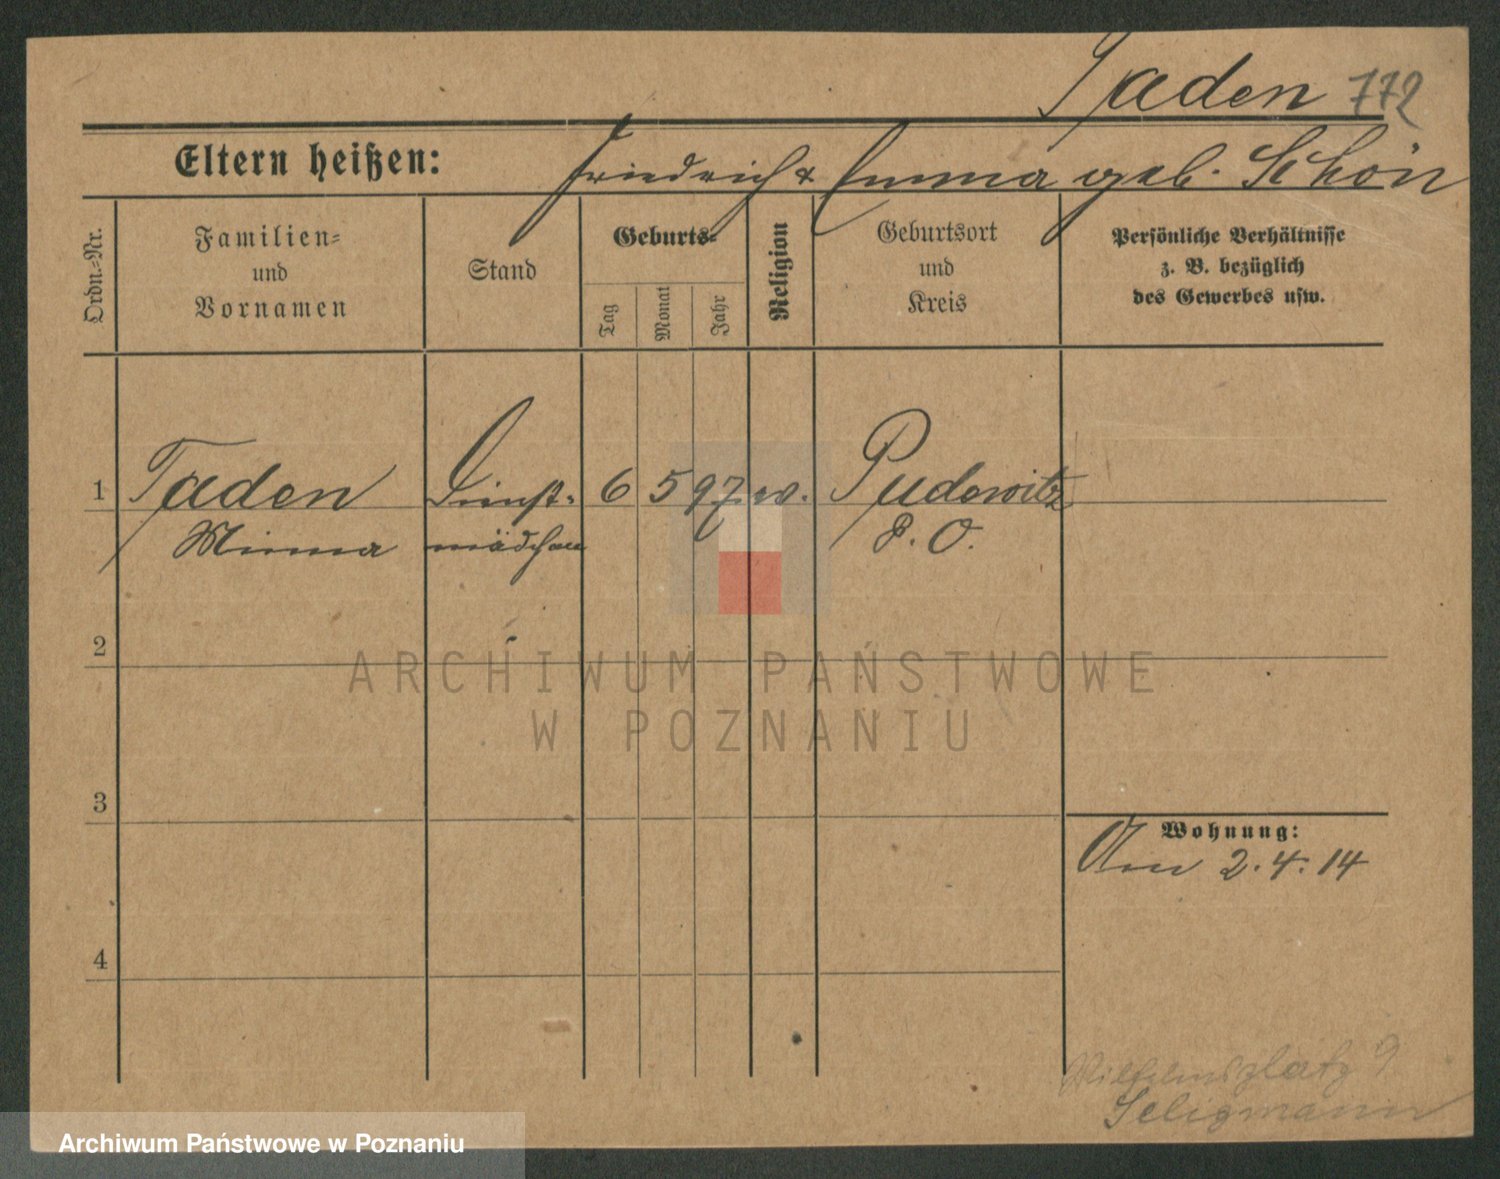 Taden 772
Eltern heißen: Friedrich & Emma geb. Schön
Ordn.=Nr.
Familien=
und
Vornamen
Stand
Geburts-
Tag
Monat
Jahr
Religion
Geburtsort
und
Kreis
Persönliche Verhältnisse
z. B. bezüglich
des Gewerbes usw.
1 Taden Dienst- 6 5 97 w. Pudewitz
Minna mädchen P. O.
2
ARCHIWUM PAŃSTWOWE
W POZNANIU
3
Wohnung:
Am 2.4.14
4
Wilhelmsplatz 9
Seligmann
Archiwum Państwowe w Poznaniu